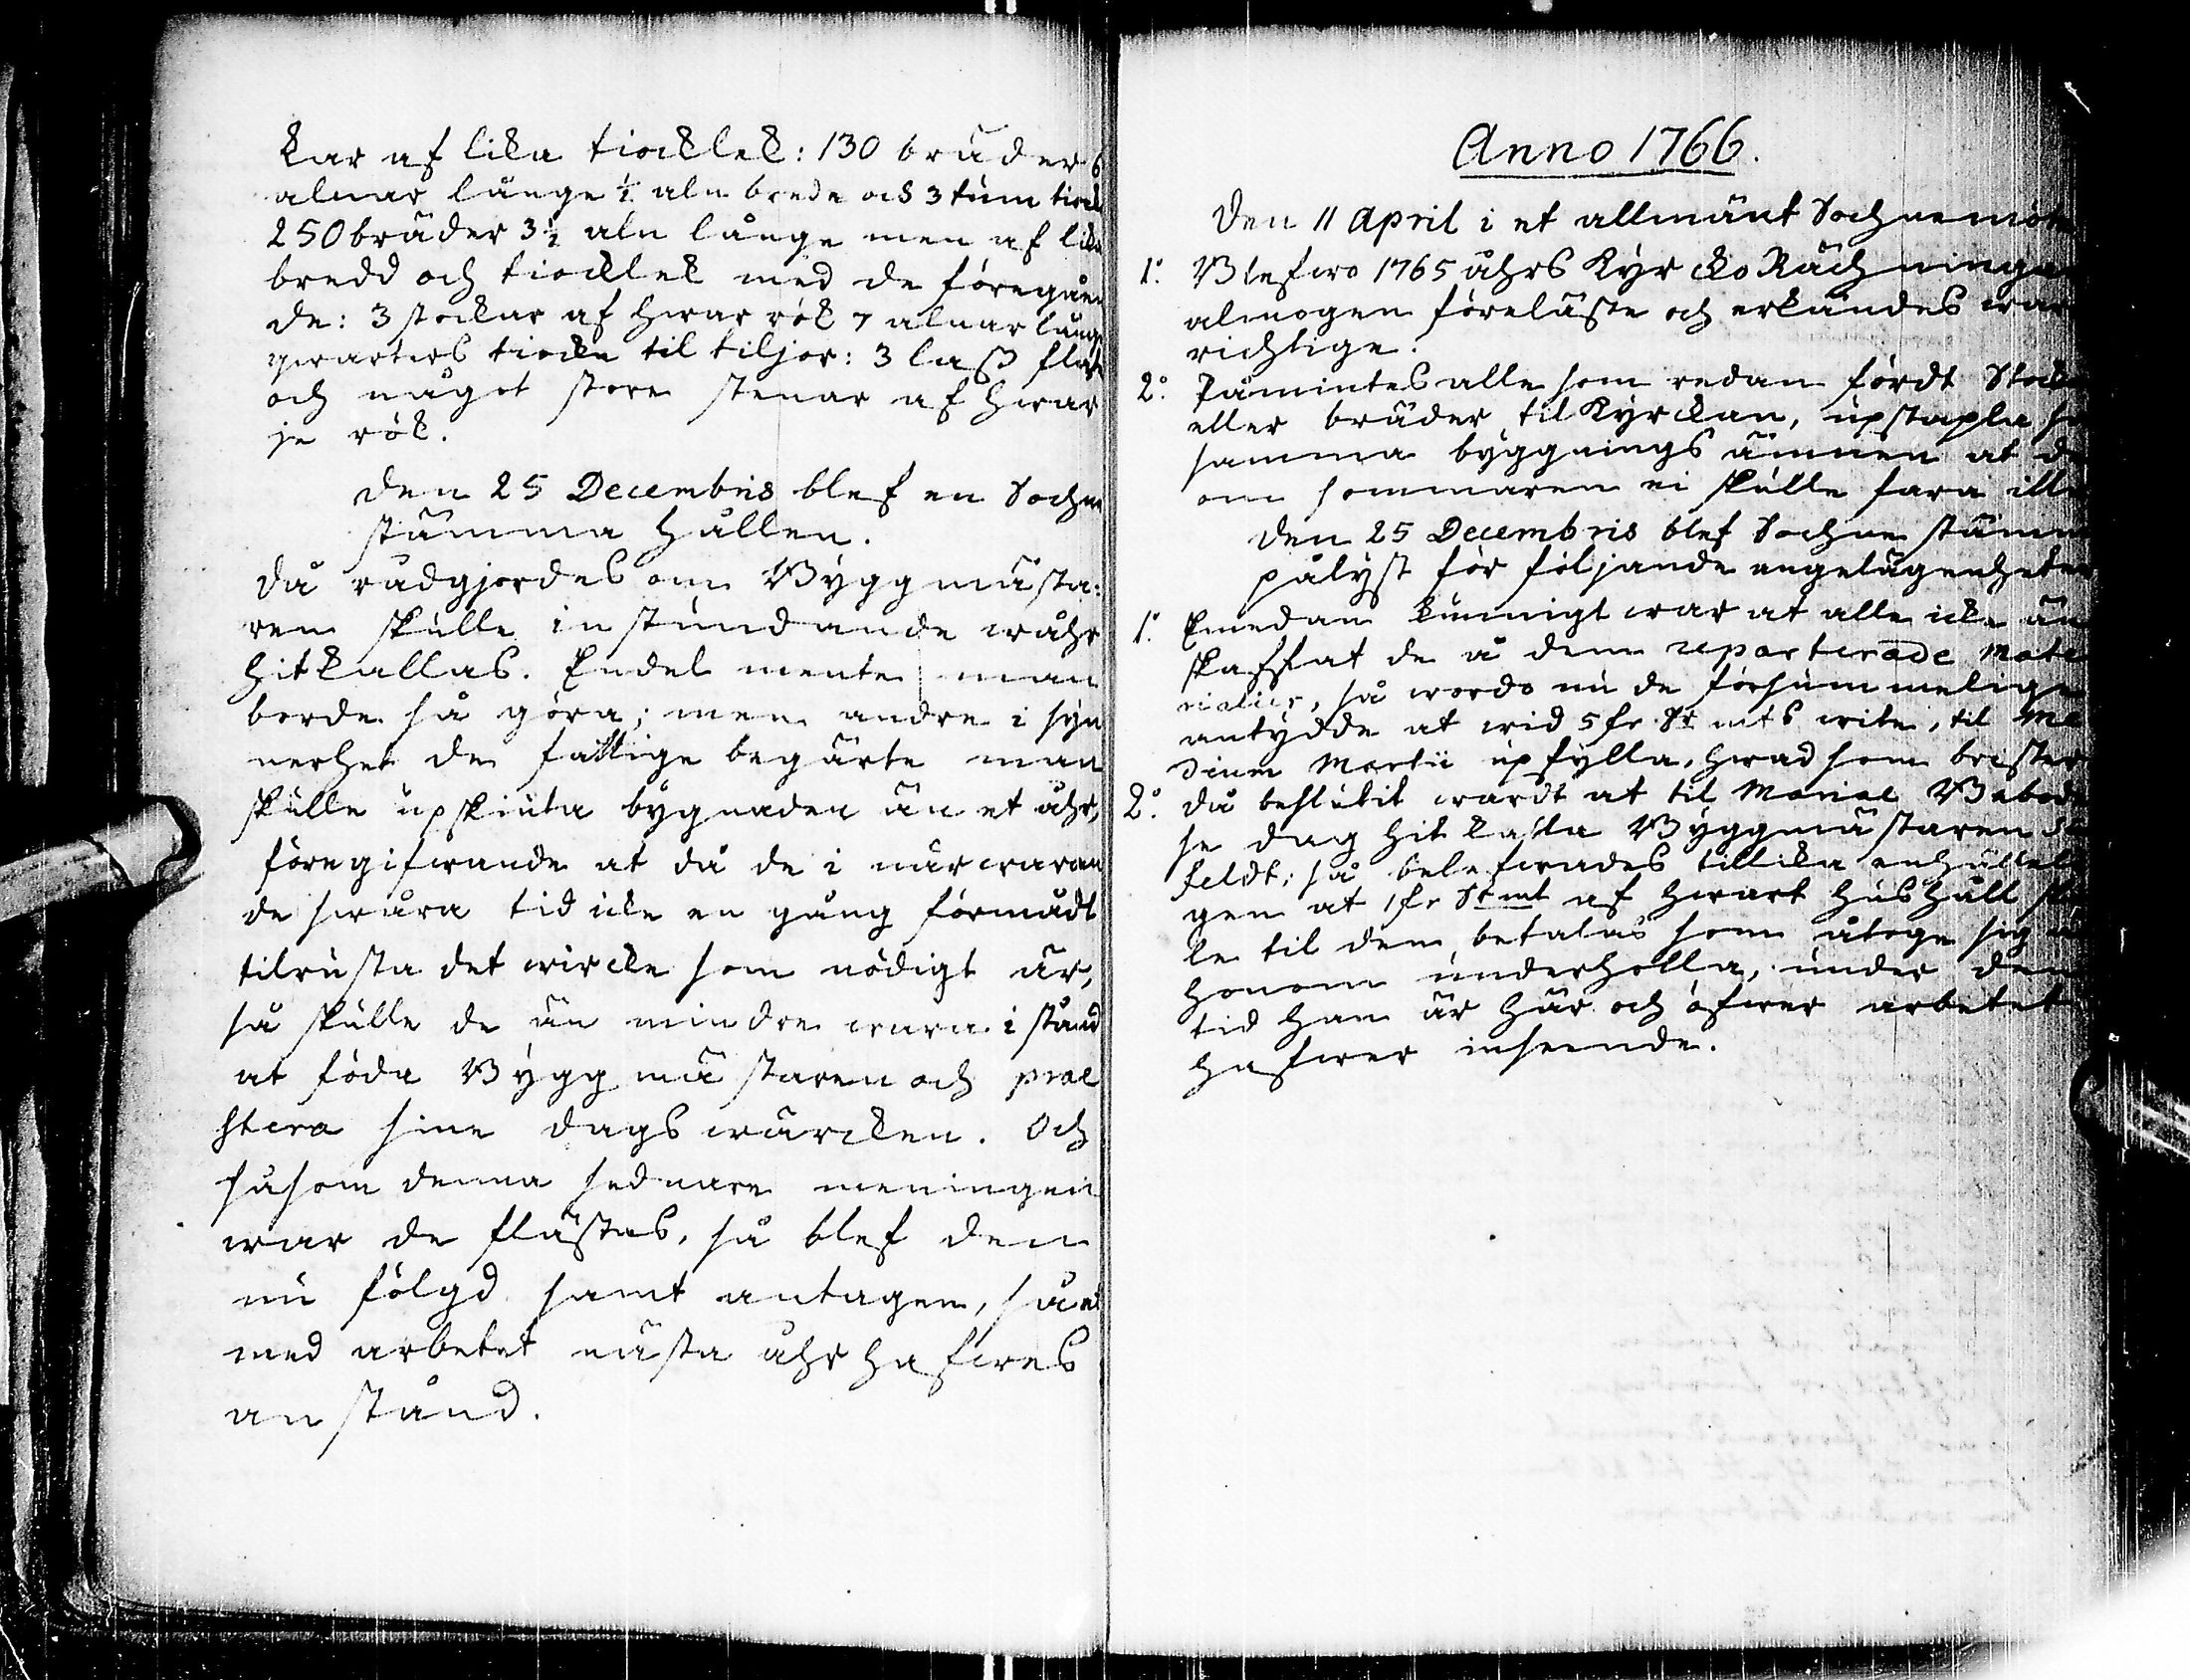 kar af lika tiocklek: 130 bräder 6
alnar långe ½ aln brede och 3 tum tiock
250 bräder 3½ aln långe men af lika
bredd och tiocklek med de föregåen
de: 3 stockar af hwar rök 7 alnar långe
qwarters tiocke til tiljor: 3 lass flate
och något store stenar af hwar
je rök.
Den 25 Decembris blef en Sochne
stämma hållen.
Då rådgjordes om Byggmästa:
ren skulle instundande wåhr
hitkallas. Endel mente man
borde så göra; men andre i syn
nerhet de fattige begärte man
skulle upskiuta bygnaden än et åhr,
föregifwande at då de i närwaran
de swåra tid icke en gång förmådt
tilrusta det wircke som nödigt är,
så skulle de än mindre wara i stånd
at föda Byggmästaren och prae
stera sine dagswärcken. Och
såsom denna sednare meningen
war de flästas, så blef den
nu fölgd samt antagen, så at
med arbetet nästa åhr hafwes
anstånd.
Anno 1766.
Den 11 April i et allmänt Sochnemöte
1º. Blefwo 1765 åhrs Kyrcko Räckningar
almogen föreläste och erkändes wara
richtige.
2º. Påmintes alle som redan fördt Stock
eller bräder til Kyrckan, upstapla
samma byggnings ämnen at de
om sommaren ei skulle fara illa
Den 25 Decembris blef Sochne stämma
pålyst för följande angelägenheter
1º. Emedan kunnigt war at alle icke än
skaffat de å dem reparterade mate
rialier, så wordo nu de försummelige
antydde at wid 5 fr Sr mts wite, til Me
dium Martii upfylla, hwad som brister
2º. Då beslutit wardt at til Mariae Bebod
se dag hit kalla Byggmästaren
feldt; så belefwades tillika enhällel
gen at 1 fr Sr mt af hwart hushåll
le til dem betalas som åtoge sig
honom underholla, under den
tid han är här och öfwer arbetet
hafwer inseende.